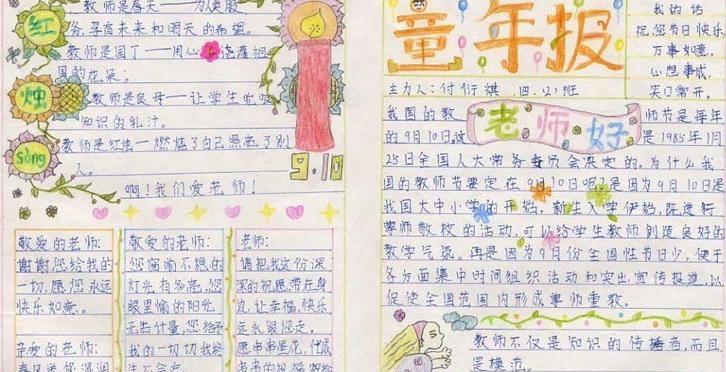 教师是春天——为人类服
务,孕育未来和明天的希望。
教师是园丁——用心浇灌祖
国的花朵。
教师是良母——让学生吮吸
知识的乳汁。
教师是红烛——燃烧了自己照亮了别
人。
啊!我们爱老师!
红
烛
sòng
9.10
敬爱的老师:
谢谢您给我的
一切,愿您永远
快乐如意。
亲爱的老师:
敬爱的老师:
您窗前不熄的
灯光有多亮,您
眼里愉的阳光
无法计量,您给予
我的一切切我终
老师:
请把我这份深
深的祝愿带在身
边,让幸福、快乐
永永留您走。
愿串串星花,代成
童年报
我的话
祝您节日快乐,
万事如意,
心想事成,
笑口常开。
主力人:付衍祺 四.(2)班
老师好
我国的教师节是每年
的9月10日,这是1985年1月
25日全国人大常务委员会决定的。为什么我
国的教师节要定在9月10日呢?是因为9月10日是
我国大中小学的开始,新生入学伊始,陈逐行
尊师敬校的活动,可以给学生教师创造良好的
教学气氛。再是因为9月份全国性节日少,便于
各方面集中时间组织活动和突出宣传报道,以
促使全国范围内形成尊师重教。
教师不仅是知识的传播者,而且
是模范。